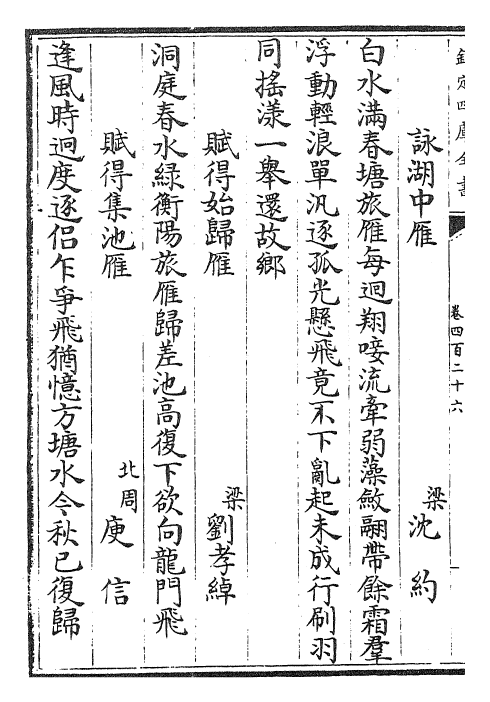 欽定四庫全書
卷四百二十六
詠湖中雁
梁 沈約
白水滿春塘旅雁每迴翔唼流牽弱藻斂翮帶餘霜羣
浮動輕浪單汎逐孤光懸飛竟不下亂起未成行刷羽
同搖漾一舉還故鄉
賦得始歸雁
梁 劉孝綽
洞庭春水綠衡陽旅雁歸差池高復下欲向龍門飛
賦得集池雁
北周 庾信
逢風時迥度逐侣乍爭飛猶憶方塘水今秋已復歸